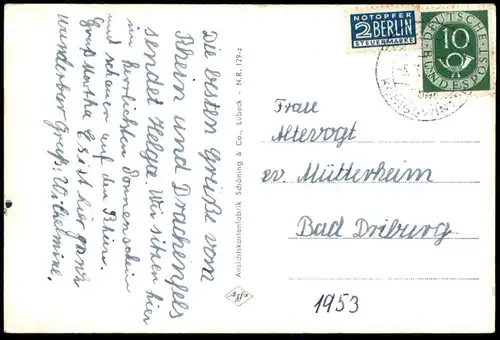 Die besten Grüße vom
Rhein und Drachenfels
sendet Helga. Wir sitzen hier
im herrlichsten Sonnenschein
und schauen auf den Rhein.
Es ist hier ganz
wunderbar. Gruß: Wilhelmine.
Ansichtskartenfabrik Schöning & Co., Lübeck - N.R. 129-z
NOTOPFER
2 BERLIN
STEUERMARKE
DEUTSCHE
10
BUNDESPOST
Frau
Altevogt
ev. Mütterheim
Bad Driburg
1953